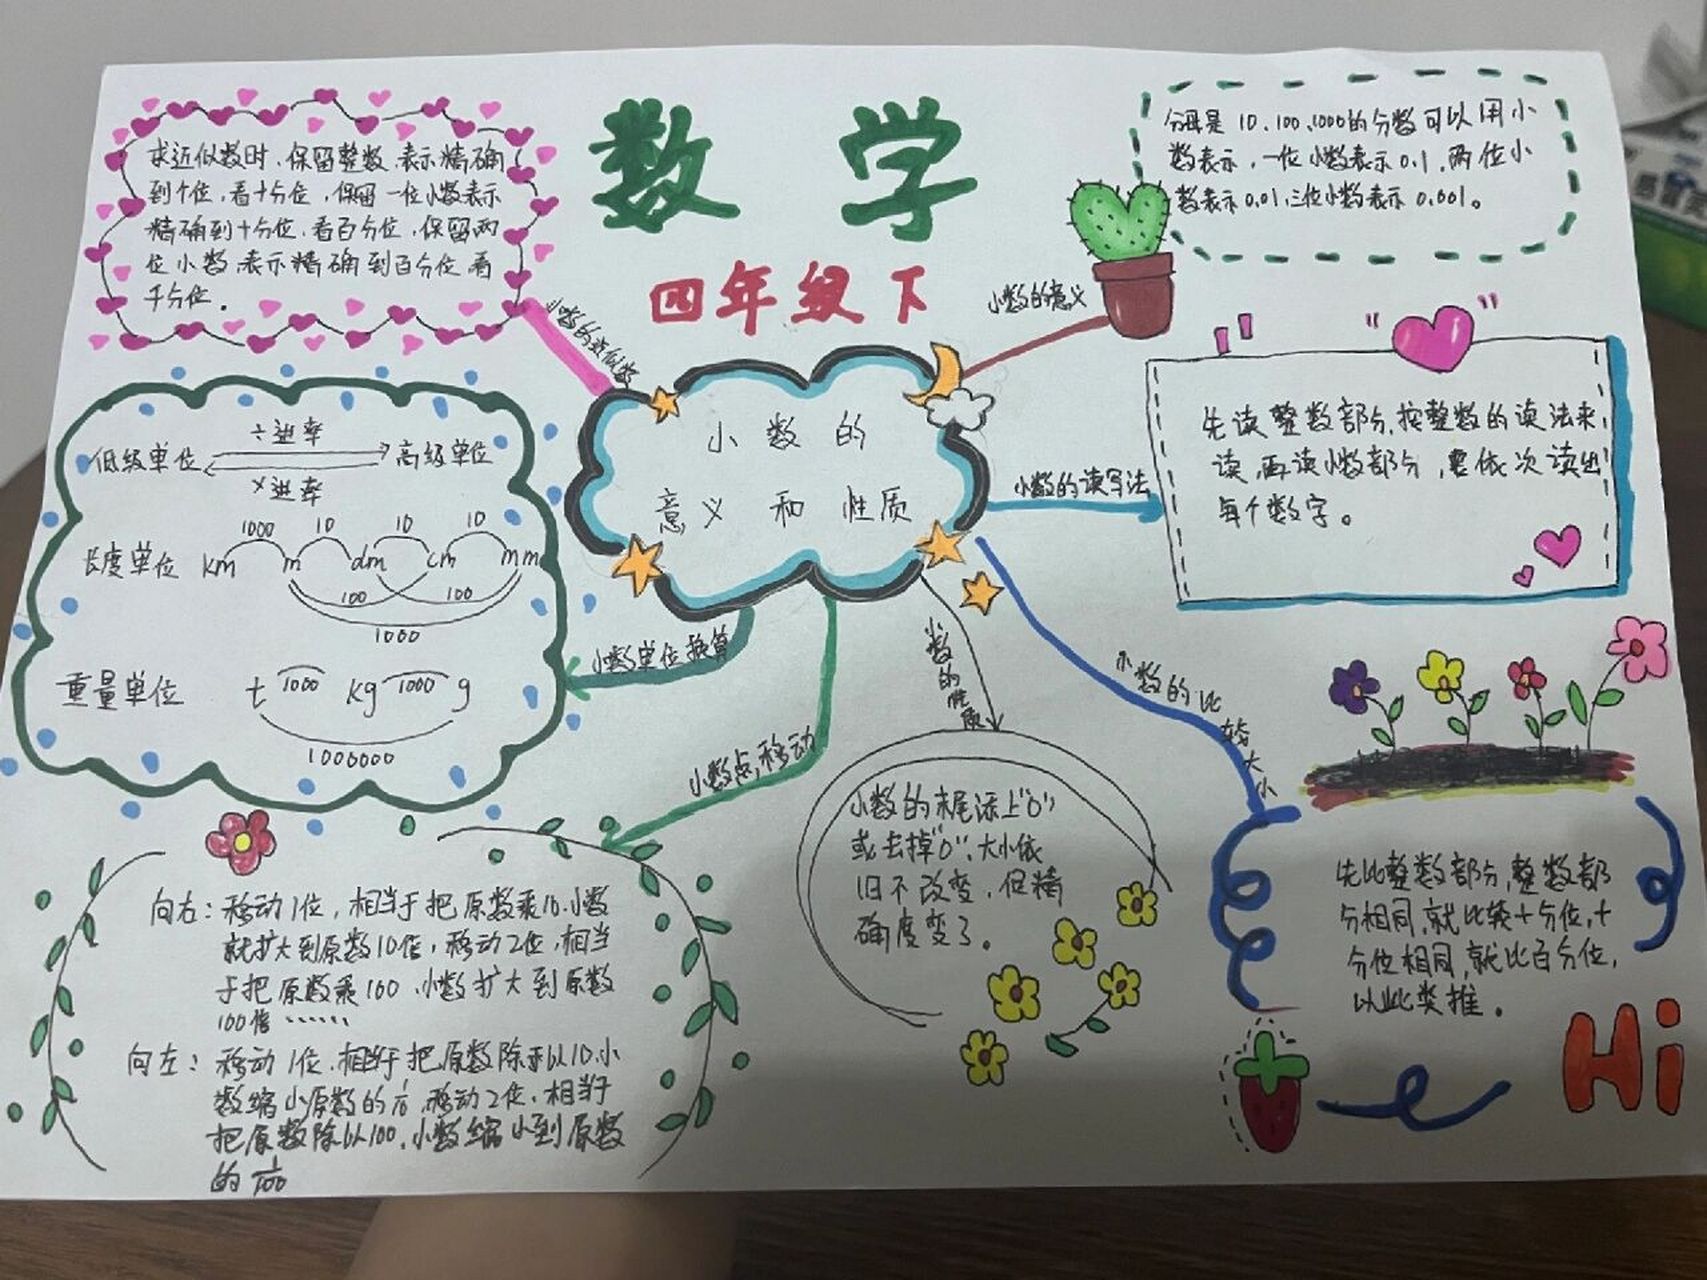 数学
四年级下
小数的
意义和性质
小数的近似数
求近似数时,保留整数,表示精确
到个位,看十分位,保留一位小数表示
精确到十分位,看百分位,保留两
位小数,表示精确到百分位看
千分位。
小数的意义
分母是10、100、1000的分数可以用小
数表示,一位小数表示0.1,两位小
数表示0.01,三位小数表示0.001。
小数的读写法
先读整数部分,按整数的读法来
读,再读小数部分,要依次读出
每个数字。
小数单位换算
÷进率
低级单位 高级单位
×进率
1000 10 10 10
长度单位 km m dm cm mm
100 100
1000
重量单位 t 1000 kg 1000 g
1000000
小数点移动
向右:移动1位,相当于把原数乘10.小数
就扩大到原数10倍,移动2位,相当
于把原数乘100.小数扩大到原数
100倍……
向左:移动1位.相当于把原数除以10.小
数缩小原数的1/10,移动2位,相当于
把原数除以100.小数缩小到原数
的1/100
小数的性质
小数的末尾添上“0”
或去掉“0”,大小依
旧不改变,但精
确度变了。
小数的比较大小
先比整数部分,整数部
分相同,就比较十分位,十
分位相同,就比百分位,
以此类推。
Hi